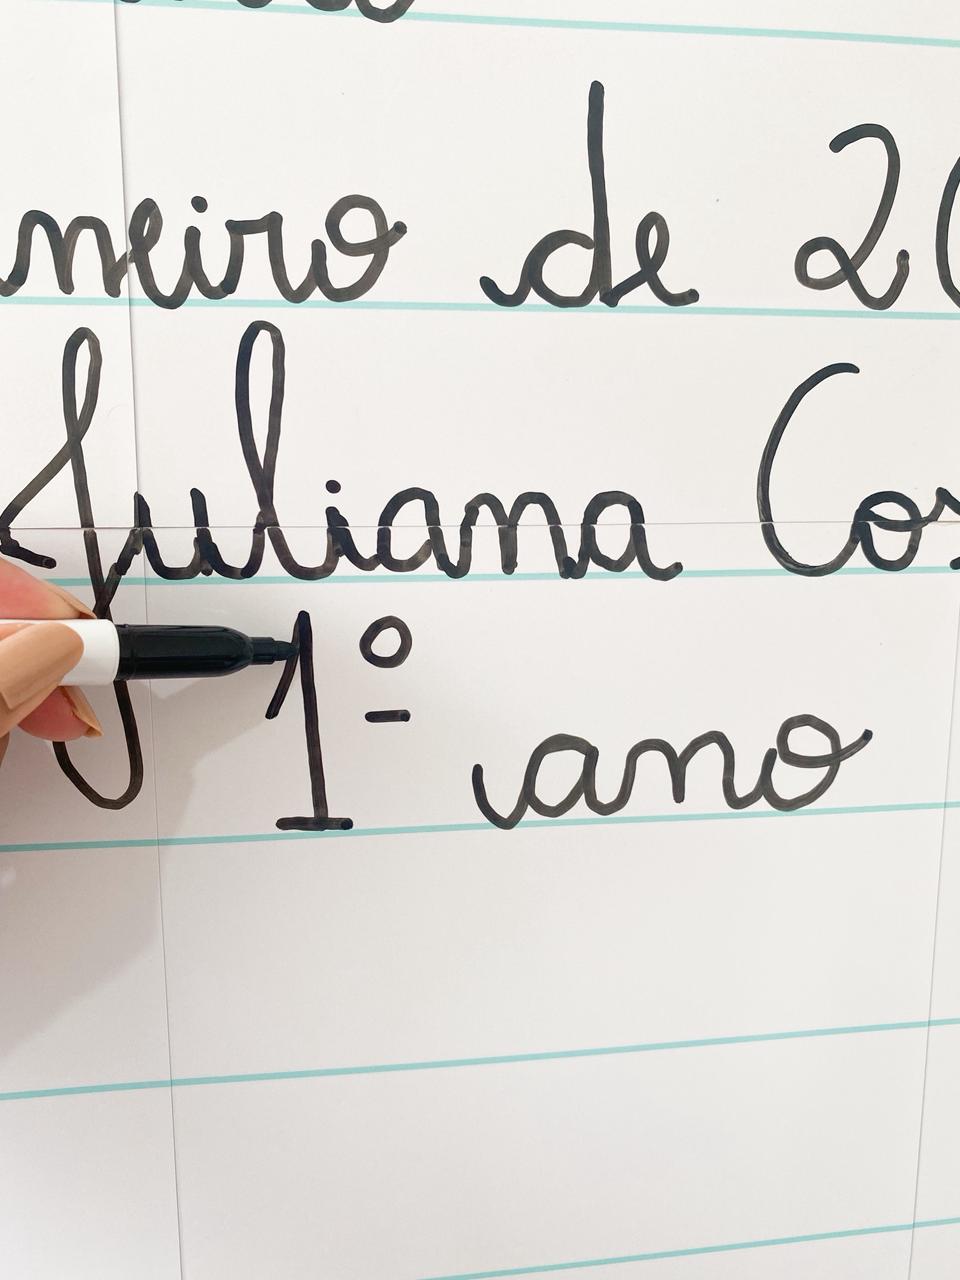 neiro de 2
Juliana Cos
1º ano